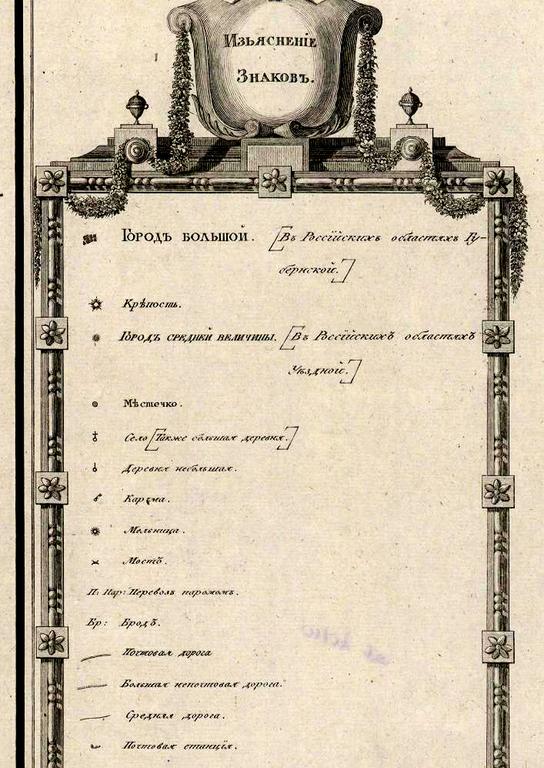 Изьясненіе
Знаковъ.
Городъ большой. [Въ Россійскихъ областяхъ Гу-
бернской.]
Крѣпость.
Городъ средней величины. [Въ Россійскихъ областяхъ
Уѣздной.]
Мѣстечко.
Село [Также большая деревня.]
Деревня небольшая.
Карчма.
Мельница.
Мостъ.
П: Пар: Перевозъ паромомъ.
Бр: Бродъ.
Почтовая дорога
Большая непочтовая дорога.
Средняя дорога.
Почтовая станція.